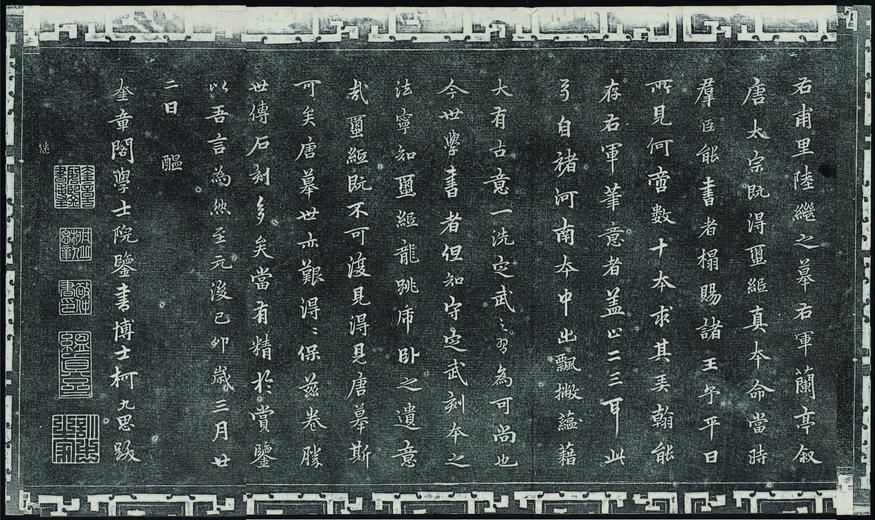 右甫里陸繼之摹右軍蘭亭叙
唐太宗既得璽紙真本命當時
羣臣能書者榻賜諸王予平日
所見何啻數十本求其弄翰能
存右軍筆意者盖止二三耳此
弓自褚河南本中出飄撇蘊藉
大有古意一洗定武之習為可尚也
今世學書者但知守定武刻本之
法寧知璽紙龍跳虎卧之遺意
哉璽紙既不可復見得見唐摹斯
可矣唐摹世亦艱得〻保兹卷勝
世傳石刻多矣當有精於賞鑒
以吾言為然至元後己卯歲三月廿
二日
奎章閣學士院鑒書博士柯九思跋